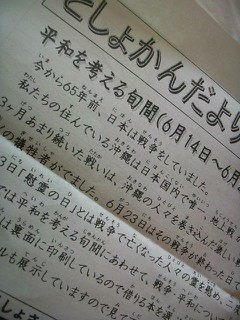 としょかんだより
平和を考える旬間(6月14日~6月
今から65年前、日本は戦争をしていました。
私たちの住んでいる沖縄は日本国内で唯一、地上戦
3ヶ月あまり続いた戦いは、沖縄の人々を巻き込んだ
の犠牲者がでました。6月23日はその戦争が終わった日
3日「慰霊の日」とは戦争で亡くなった人々の霊を慰め、
では平和を考える旬間にあわせて、戦争・平和につい
は裏面に印刷しているので借りる本を選
も展示していますので見て
としょき